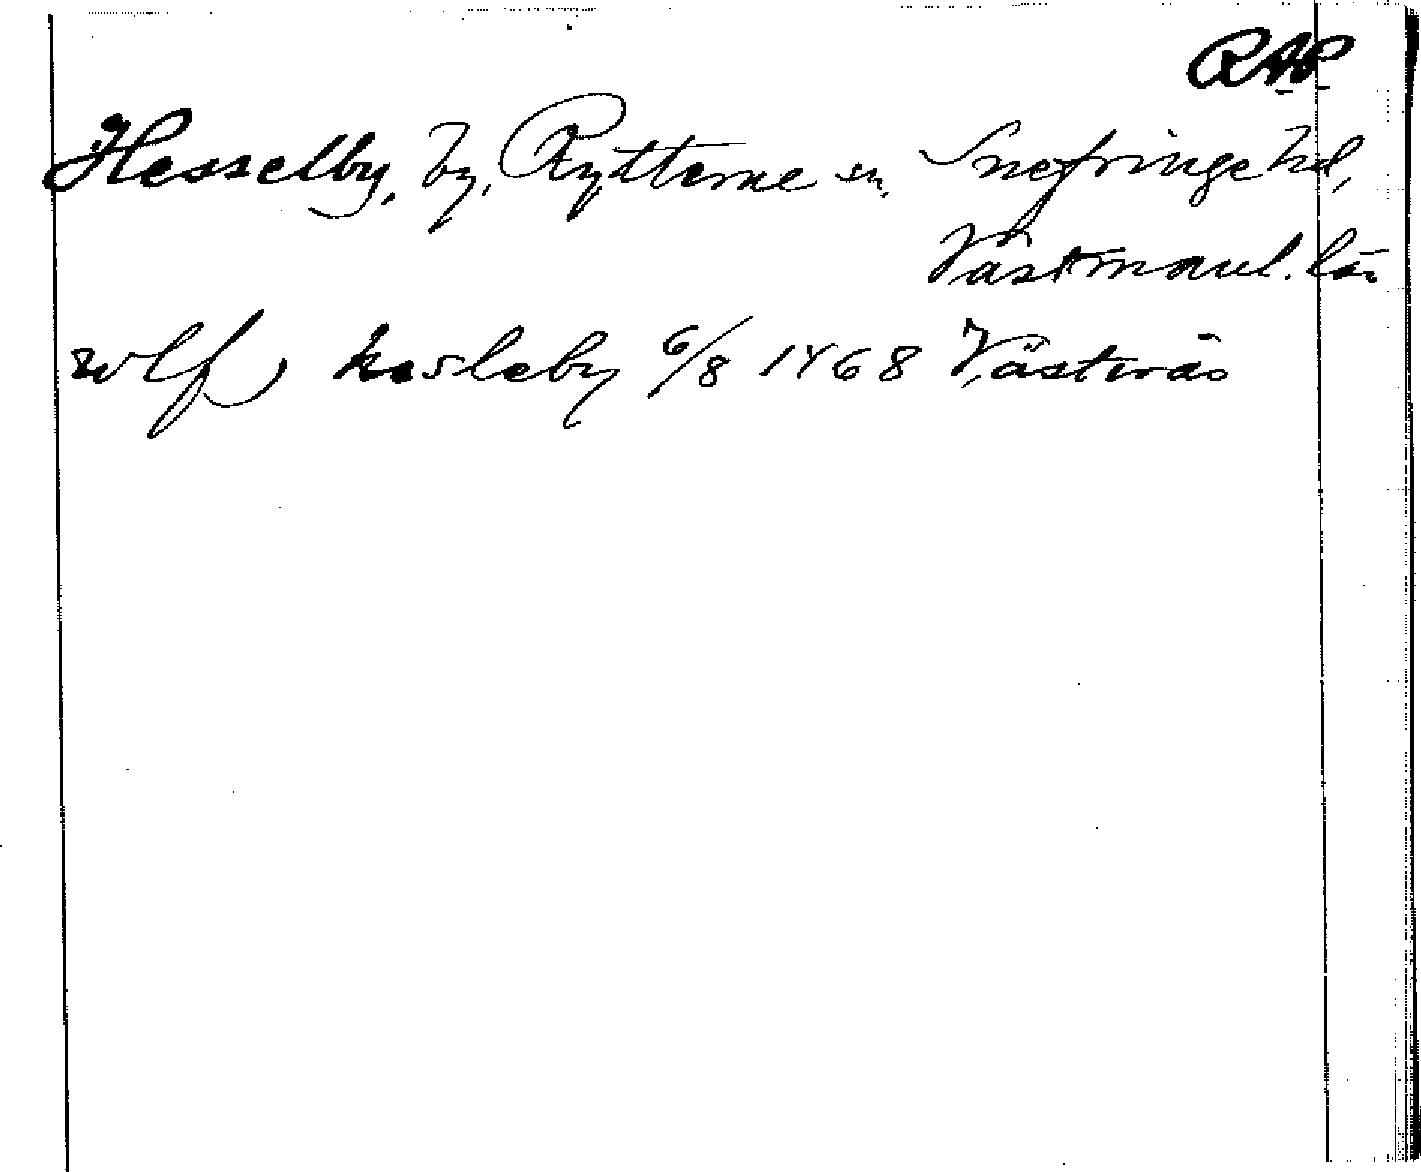 RAP
Hesselby, by, Rytterne sn, Snefringe hd,
Västmanl. län
wlf) hesleby 6/8 1468 Västerås